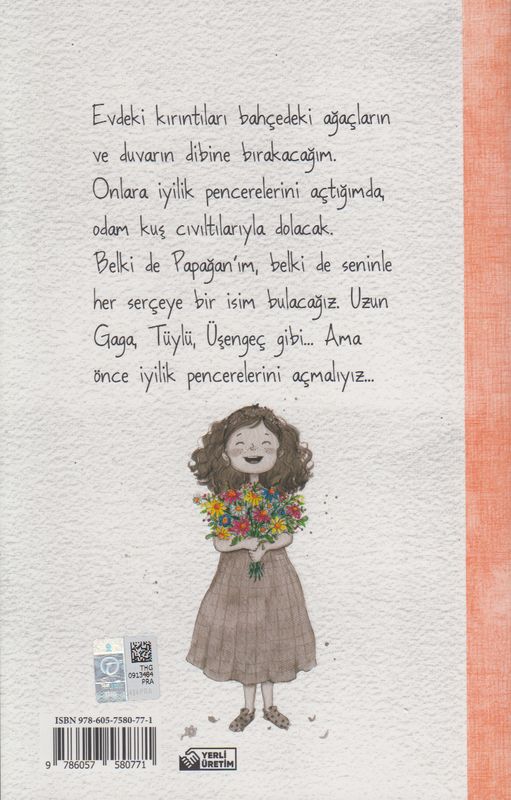 Evdeki kırıntıları bahçedeki ağaçların
ve duvarın dibine bırakacağım.
Onlara iyilik pencerelerini açtığımda,
odam kuş cıvıltılarıyla dolacak.
Belki de Papağan'ım, belki de seninle
her serçeye bir isim bulacağız. Uzun
Gaga, Tüylü, Üşengeç gibi... Ama
önce iyilik pencerelerini açmalıyız...
THG
0913484
PRA
ISBN 978-605-7580-77-1
9 786057 580771
YERLİ
ÜRETİM